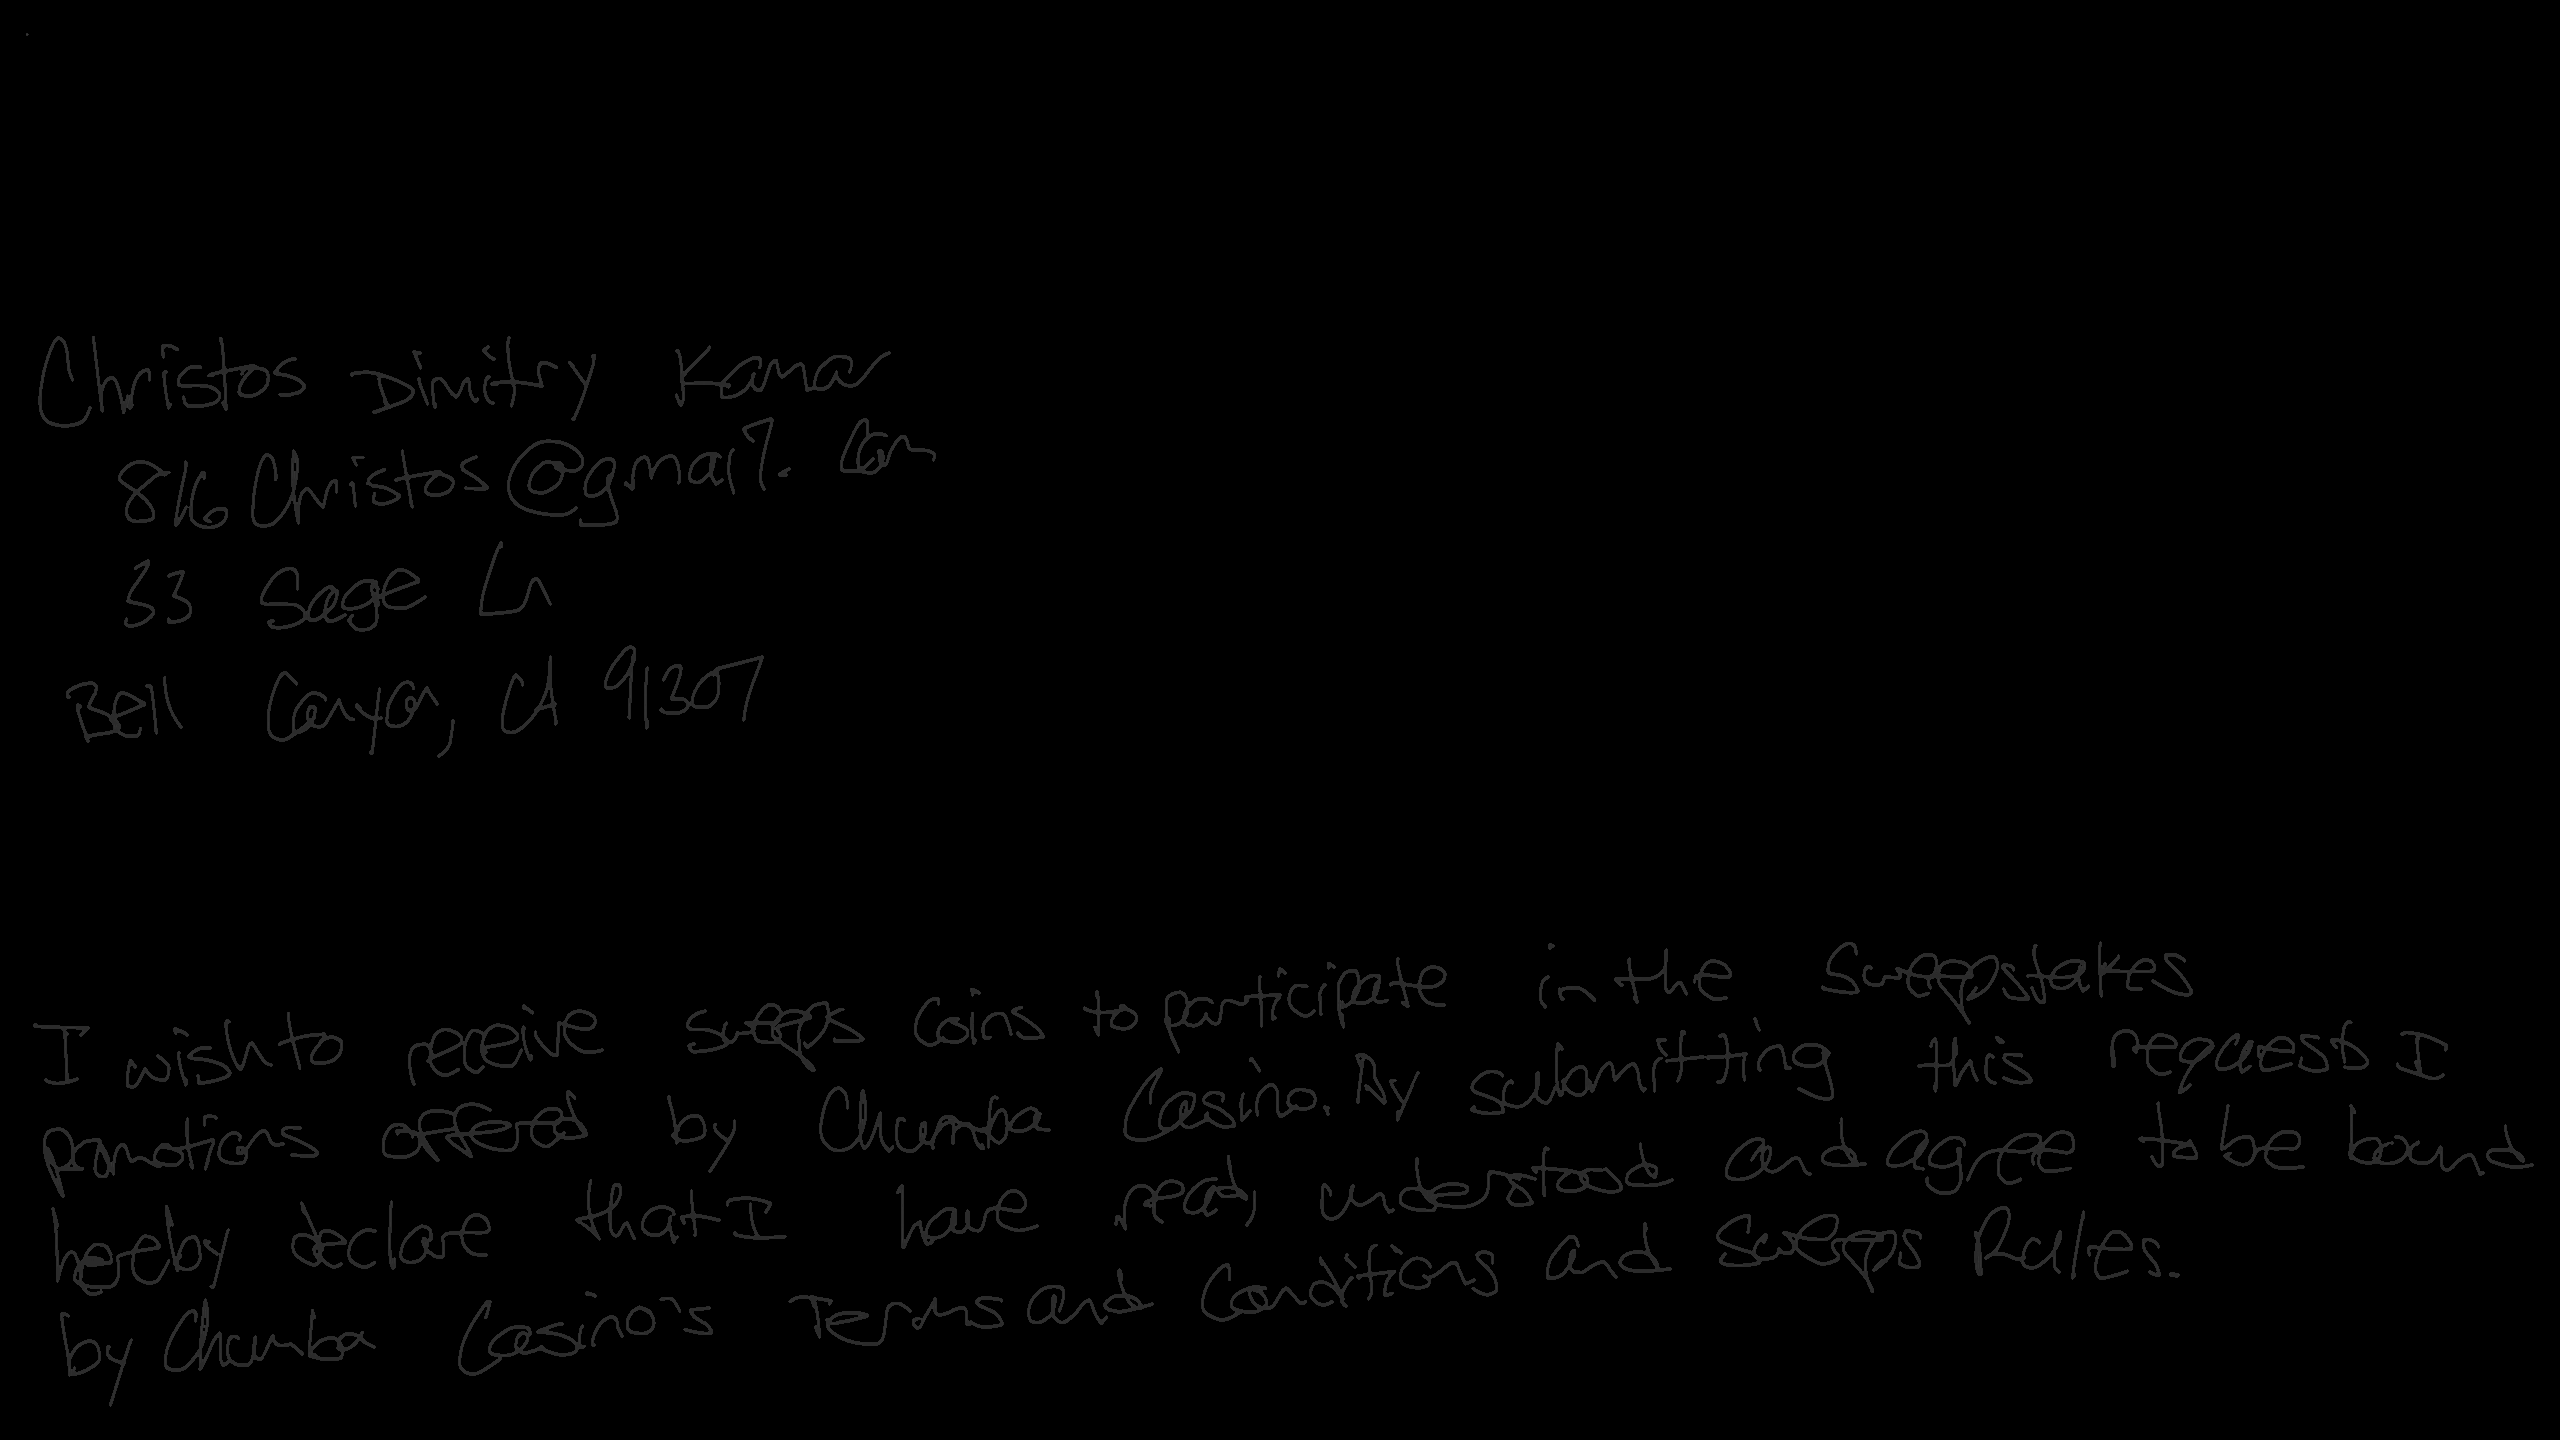 Christos Dimitry Kamar
816Christos@gmail.com
33 Sage Ln
Bell Canyon, CA 91307
I wish to receive sweeps coins to participate in the sweepstakes
promotions offered by Chumba Casino. By submitting this request I
hereby declare that I have read, understood and agree to be bound
by Chumba Casino's Terms and Conditions and Sweeps Rules.